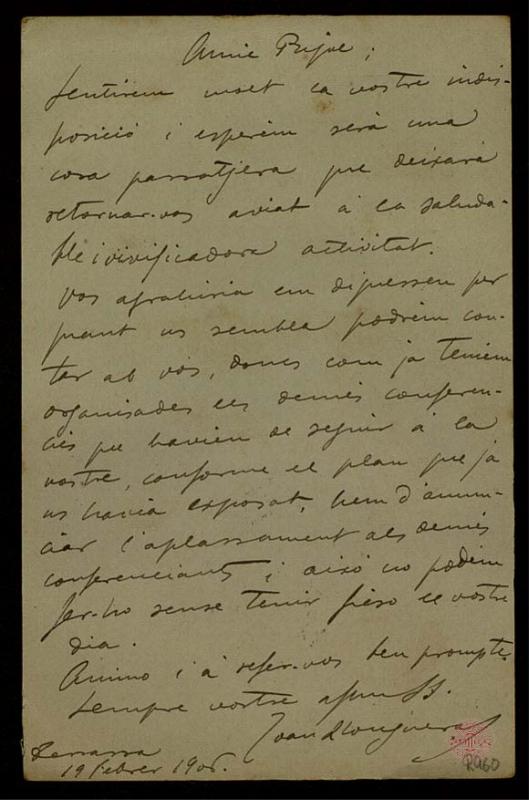 Amic Pujol;
Sentirem molt la vostre indis-
posició i esperèm serà una
cosa passatjera que deixarà
retornar-vos aviat à la saluda-
ble i vivificadora activitat.
Vos agrahiria em diguesseu per
quant us sembla podrèm con-
tar ab vos, doncs com ja teniem
organisades les demés conferen-
cies que havien de seguir à la
vostre, conforme el plan que ja
us havia exposat, hem d'anun-
ciar l'aplassament als demés
conferenciants i aixó no podèm
fer-ho sense tenir fixo el vostre
dia.
Animo i à refer-vos ben prompte.
Sempre vostre
Joan Llongueras
Terrassa
19 Febrer 1906.
R960